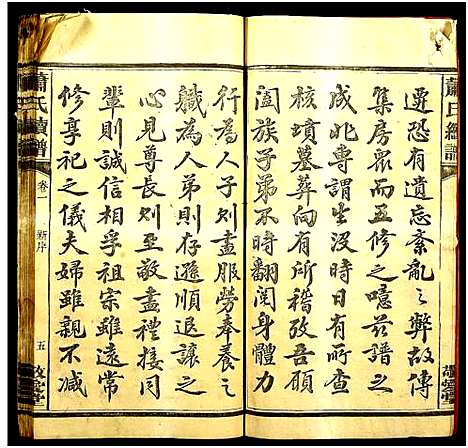 蕭氏續譜
遝恐有遺忘紊亂之弊故傳
集房眾而五修之噫茲譜之
成北專謂生没時日有所查
核墳墓葬向有所稽攷吾願
闔族子弟不時翻閱身體力
行為人子則盡服勞奉養之
職為人弟則存遜順退讓之
心見尊長則至敬盡禮接同
輩則誠信相孚祖宗雖遠常
修享祀之儀夫婦雖親不減
蕭氏續譜
卷一
新序
五
敬愛堂